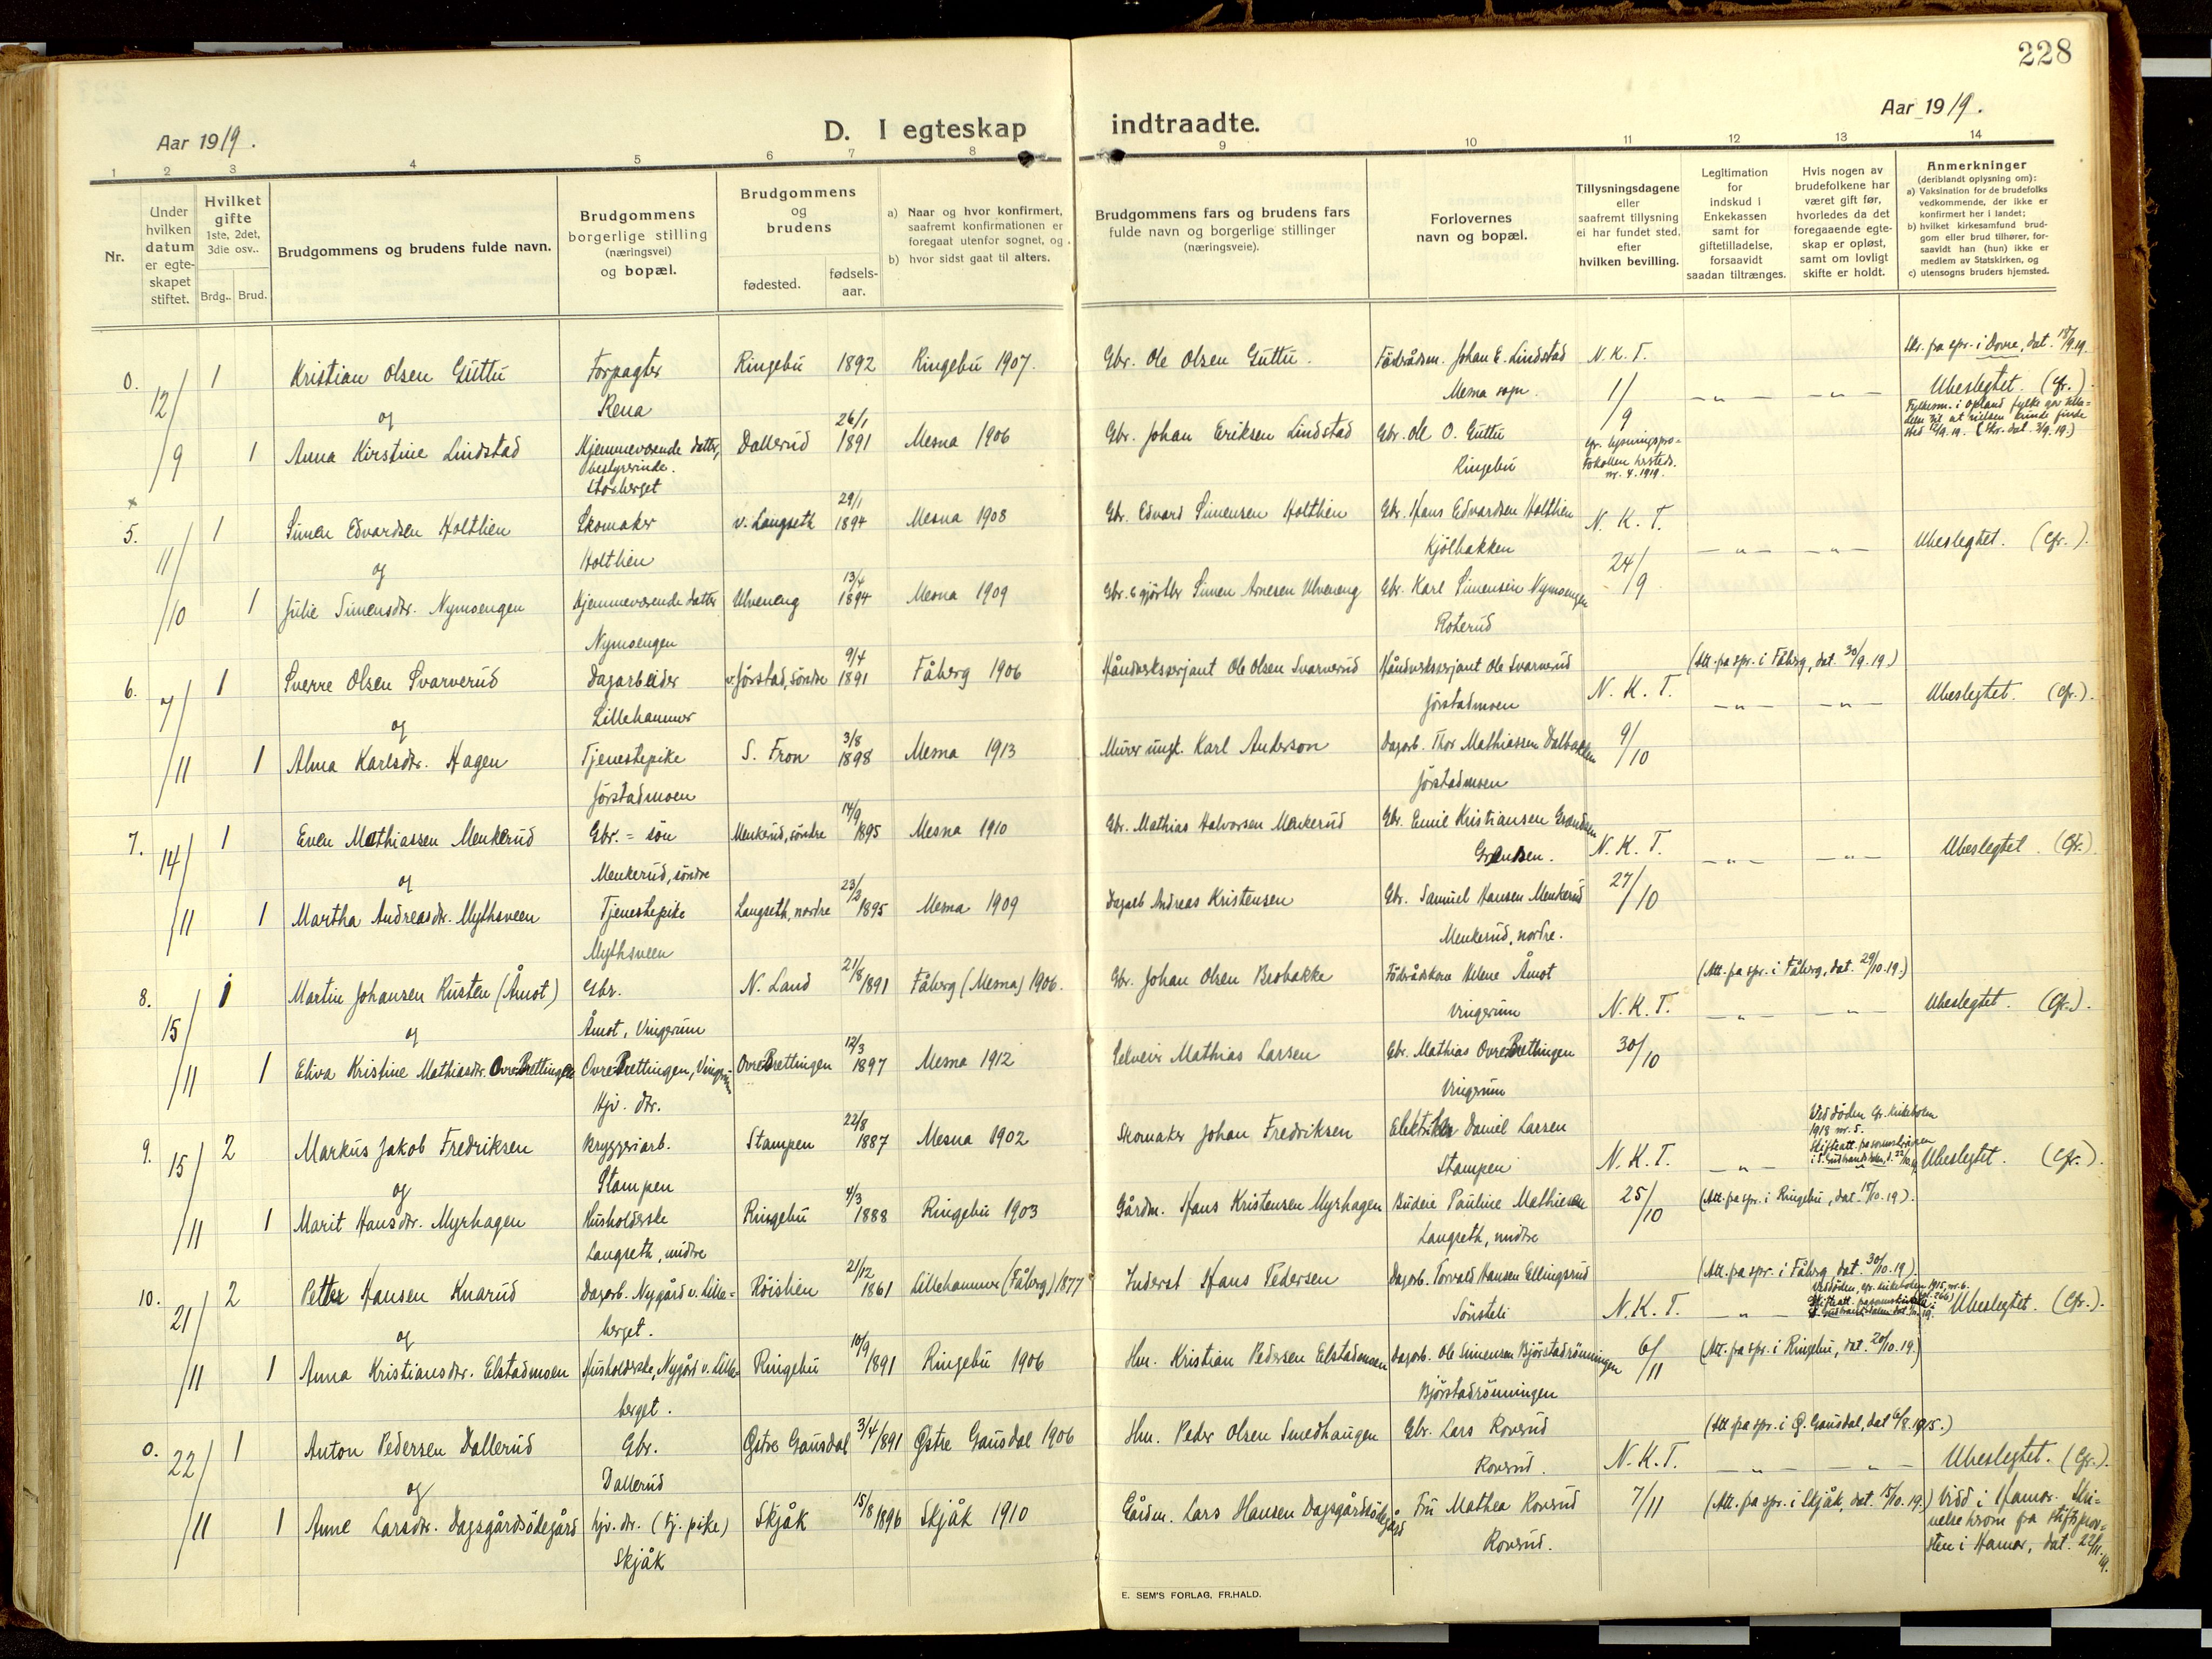 228
Aar 1919.
D. I egteskap indtraadte.
Aar 1919.
1 2 3 4 5 6 7 8 9 10 11 12 13 14
Nr.
Under hvilken datum er egteskapet stiftet.
Hvilket gifte 1ste, 2det, 3die osv..
Brdg.. Brud.
Brudgommens og brudens fulde navn.
Brudgommens borgerlige stilling (næringsvei) og bopæl.
Brudgommens og brudens
fødested.
fødsels-aar.
a) Naar og hvor konfirmert, saafremt konfirmationen er foregaat utenfor sognet, og
b) hvor sidst gaat til alters.
Brudgommens fars og brudens fars fulde navn og borgerlige stillinger (næringsveie).
Forlovernes navn og bopæl.
Tillysningsdagene eller saafremt tillysning ei har fundet sted. efter hvilken bevilling.
Legitimation for indskud i Enkekassen samt for giftetilladelse, forsaavidt saadan tiltrænges.
Hvis nogen av brudefolkene har været gift før, hvorledes da det foregaaende egteskap er opløst, samt om lovligt skifte er holdt.
Anmerkninger (deriblandt oplysning om):
a) Vaksination for de brudefolks vedkommende, der ikke er konfirmert her i landet;
b) hvilket kirkesamfund brudgom eller brud tilhører, forsaavidt han (hun) ikke er medlem av Statskirken, og
c) utensogns bruders hjemsted.
0. 12/9 1 Kristian Olsen Guttu Forpagter Rena Ringebu 1892 Ringebu 1907. Gbr. Ole Olsen Guttu. Föderådsm. Johan E. Lindstad Mesna sogn. N. K. T. 1/9 — " — — " — Skr. fra spr. i Dovre, dat. 18/9.19. Ubeslegtet. (Cfr.).
og
1 Anna Kirstine Lindstad Hjemmeværende datter, bestyrerinde. Storberget Dallerud 26/1 1891 Mesna 1906 Gbr. Johan Eriksen Lindstad Gbr. Ole O. Guttu Ringebu cfr. lysningsprotokollen hersteds. nr. 4. 1919. Fylkesm. i Opland fylke gav tilladelse til at vielsen kunde finde sted
5. 11/10 1 Simen Edvardsen Holthien Skomaker Holthien v. Langseth 29/1 1894 Mesna 1908 Gbr. Edvard Simensen Holthien Gbr. Hans Edvardsen Holthien Kjölbakken N. K. T. 24/9 — " — — " — Ubeslegtet. (Cfr.).
og
1 Julie Simensdtr. Nymoengen Hjemmeværende datter Nymoengen Ulveneng 13/4 1894 Mesna 1909 Gbr. Simen Arnesen Ulveneng Gbr. Karl Simensen Nymoengen Roterud
6. 7/11 1 Sverre Olsen Svarverud Dagarbeider Lillehammer v. Jörstad, söndre 9/4 1891 Fåberg 1906 Håndverkssersjant Ole Olsen Svarverud Håndverkssersjant Ole Svarverud Jörstadmoen N. K. T. 9/10 (Att. fra spr. i Fåbrg, dat. 30/9.19.) — " — — " — Ubeslegtet. (Cfr.).
og
1 Alma Karlsdtr. Hagen Tjenestepike Jörstadmoen S. Fron 3/8 1898 Mesna 1913 Murer ungk. Karl Anderson Dagarb. Thor Mathiassen Dalbakken Jörstadmoen
7. 14/11 1 Even Mathiassen Menkerud Gbr. = sön Menkerud, söndre Menkerud, söndre 14/9 1895 Mesna 1910 Gbr. Mathias Halvorsen Menkerud Gbr. Emil Kristiansen N. K. T. 27/10 — " — — " — Ubeslegtet. (Cfr.)
og
1 Martha Andreasdtr. Mythsveen Tjenestepike Mythsveen Langseth, nordre 23/2 1895 Mesna 1909 Dagarb Andreas Kristensen Gbr. Samuel Hansen Menkerud Menkerud, nordre.
8. 15/11 1 Martin Johansen Rusten (Åmot) Gbr. Åmot, Vingerum N. Land 21/8 1891 Fåberg (Mesna) 1906. Gbr. Johan Olsen Brobakke Föderådskone Helene Åmot Vingerum N. K. T. 30/10 (Att. fra spr. i Fåberg, dat. 29/10.19.) — " — — " — Ubeslegtet. (Cfr.).
og
1 Eliva Kristine Mathiasdtr. OvreBrettingen OvreBrettingen, Vingerum Hjv. dtr. OvreBrettingen 12/3 1897 Mesna 1912 Selveier Mathias Larsen Gbr. Mathias OvreBrettingen Vingerum
9. 15/11 2 Markus Jakob Fredriksen Bryggeriarb. Stampen Stampen 22/8 1887 Mesna 1902 Skomaker Johan Fredriksen Elektriker Daniel Larsen Stampen N. K. T. 25/10 — " — Ved döden cfr. kirkeboken 1918 nr. 5. Skifteatt. fra sorenskriveren i S. Gudbrandsdalen, d. 22/10.19 Ubeslegtet. (Cfr.).
og
1 Marit Hansdtr. Myrhagen Husholderske Langseth, midtre Ringebu 4/3 1888 Ringebu 1903 Gårdm. Hans Kristensen Myrhagen Budeie Pauline Mathiesen Langseth, midtre (Att. fra spr. i Ringebu, dat. 15/10.19).
10. 21/11 2 Petter Hansen Knarud Dagarb. Nygård v. Lilleberget. Röislien 21/12 1861 Lillehammer (Fåberg) 1877 Inderst Hans Pedersen Dagarb. Torvald Hansen Ellingsrud Sönsteli N. K. T. 6/11 (Att. fra spr. i Fåberg dat. 30/10.19). — " — Ved döden, cfr. kirkeboken 1915, nr. 6. Ubeslegtet. (Cfr.).
og
1 Anna Kristiansdtr. Elstadmoen Husholderske, Nygård v. Lilleberget. Ringebu 10/9 1891 Ringebu 1906 Hm. Kristian Pedersen Elstadmoen Dagarb. Ole Simensen Björstadrönningen Björstadrönningen (Att. fra spr. i Ringebu, dat. 20/10.19.)
0. 22/11 1 Anton Pedersen Dallerud Gbr. Dallerud Östre Gausdal 3/4 1891 Östre Gausdal 1906 Hm. Peder Olsen Smedhaugen Gbr. Lars Roverud Roverud. N. K. T. 7/11 (Att fra spr. i Ö. Gausdal, dat 6/8.1915.) — " — — " — Ubeslegtet. (Cfr.).
og
1 Anne Larsdtr. Dagsgårdsödegård hjv. dtr. (tj. pike) Skjåk Skjåk 15/8 1896 Skjåk 1910 Gårdm. Lars Hansen Dagsgårdsödegård Fru Mathea Roverud Roverud. (Att. fra spr. i Skjåk, dat. 15/10.19.) Vidd i Hamar. Skrivelse herom fra stiftsprovsten i Hamar, dat. 22/11.19.
E. SEM'S FORLAG, FR.HALD.